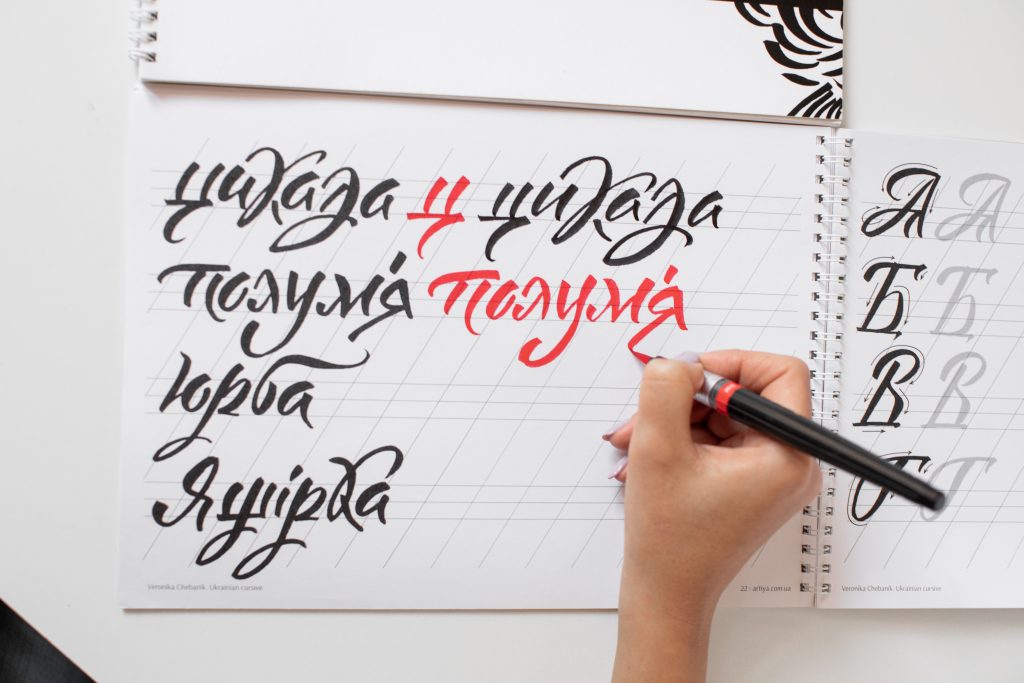 цикада ц цикада
полум'я полум'я
юрба
ящірка
Veronika Chebanik. Ukrainian cursive
22 · artiya.com.ua
А А
Б Б
В В
Г Г
Veronika Chebanik. Ukrainian cursive